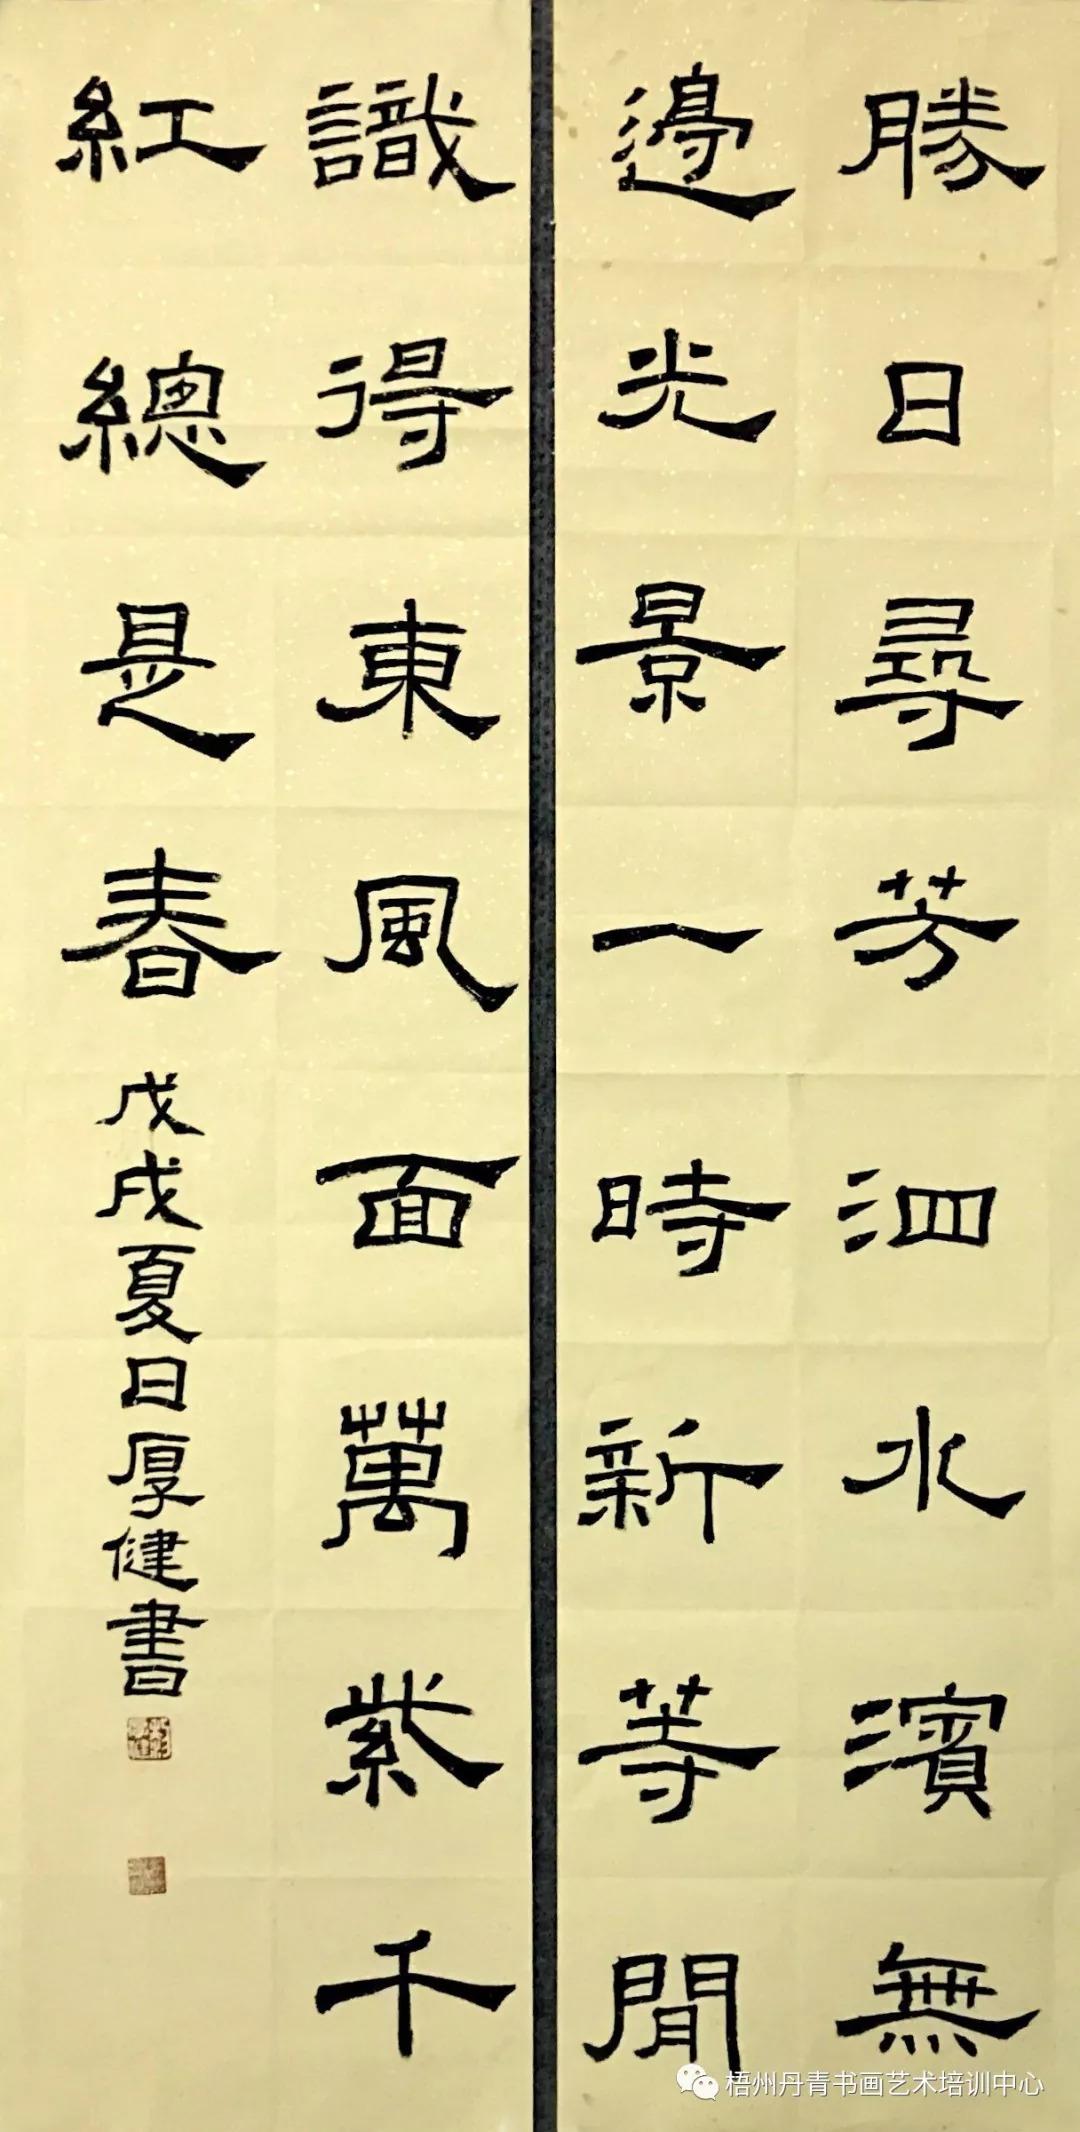 勝日尋芳泗水濱無
邊光景一時新等閒
識得東風面萬紫千
紅總是春
戊戌夏日厚健書
梧州丹青书画艺术培训中心